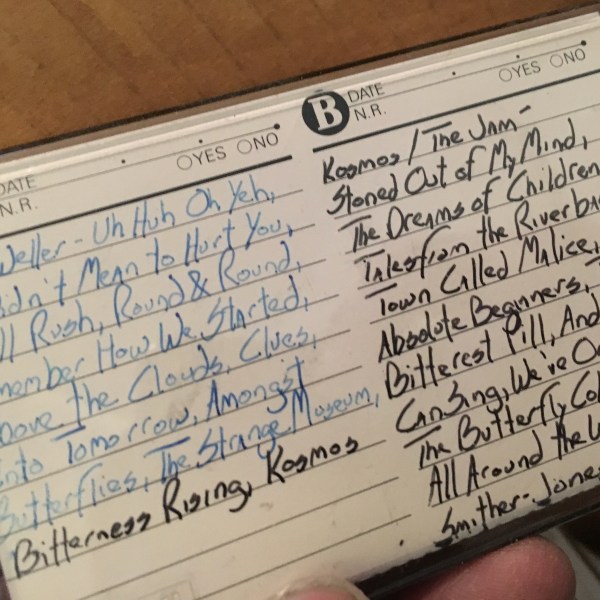 DATE
N.R.
OYES ONO
Weller - Uh Huh Oh Yeh,
Didn't Mean to Hurt You,
ll Rush, Round & Round,
member How We Started,
bove The Clouds, Clues,
Into Tomorrow, Amongst
Butterflies, The Strange Museum,
Bitterness Rising, Kosmos
B DATE
N.R.
OYES ONO
Kosmos / The Jam -
Stoned Out of My Mind,
The Dreams of Children
Tales from the Riverba
Town Called Malice,
Absolute Beginners,
Bitterest Pill, And
Can Sing, We've O
The Butterfly Col
All Around the W
Smither-Jone